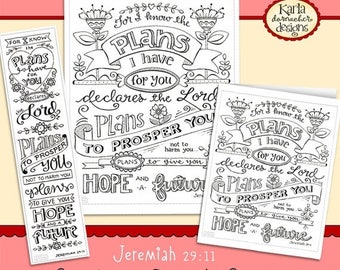 Karla
dornacher
designs
FOR I KNOW
the
Plans
I have
FOR YOU
declares
the
Lord
Plans
TO PROSPER
YOU
NOT TO HARM YOU
plans
TO GIVE YOU
HOPE
AND A
FUTURE
JEREMIAH 29:11
for I know the
PLANS
I have
for you
declares the Lord
Plans
TO PROSPER YOU
not to
harm you
PLANS to give you
HOPE AND A future
for I know the
PLANS
I have
for you
declares the Lord
Plans
TO PROSPER YOU
not to
harm you
PLANS to give you
HOPE AND A future
Jeremiah 29:11